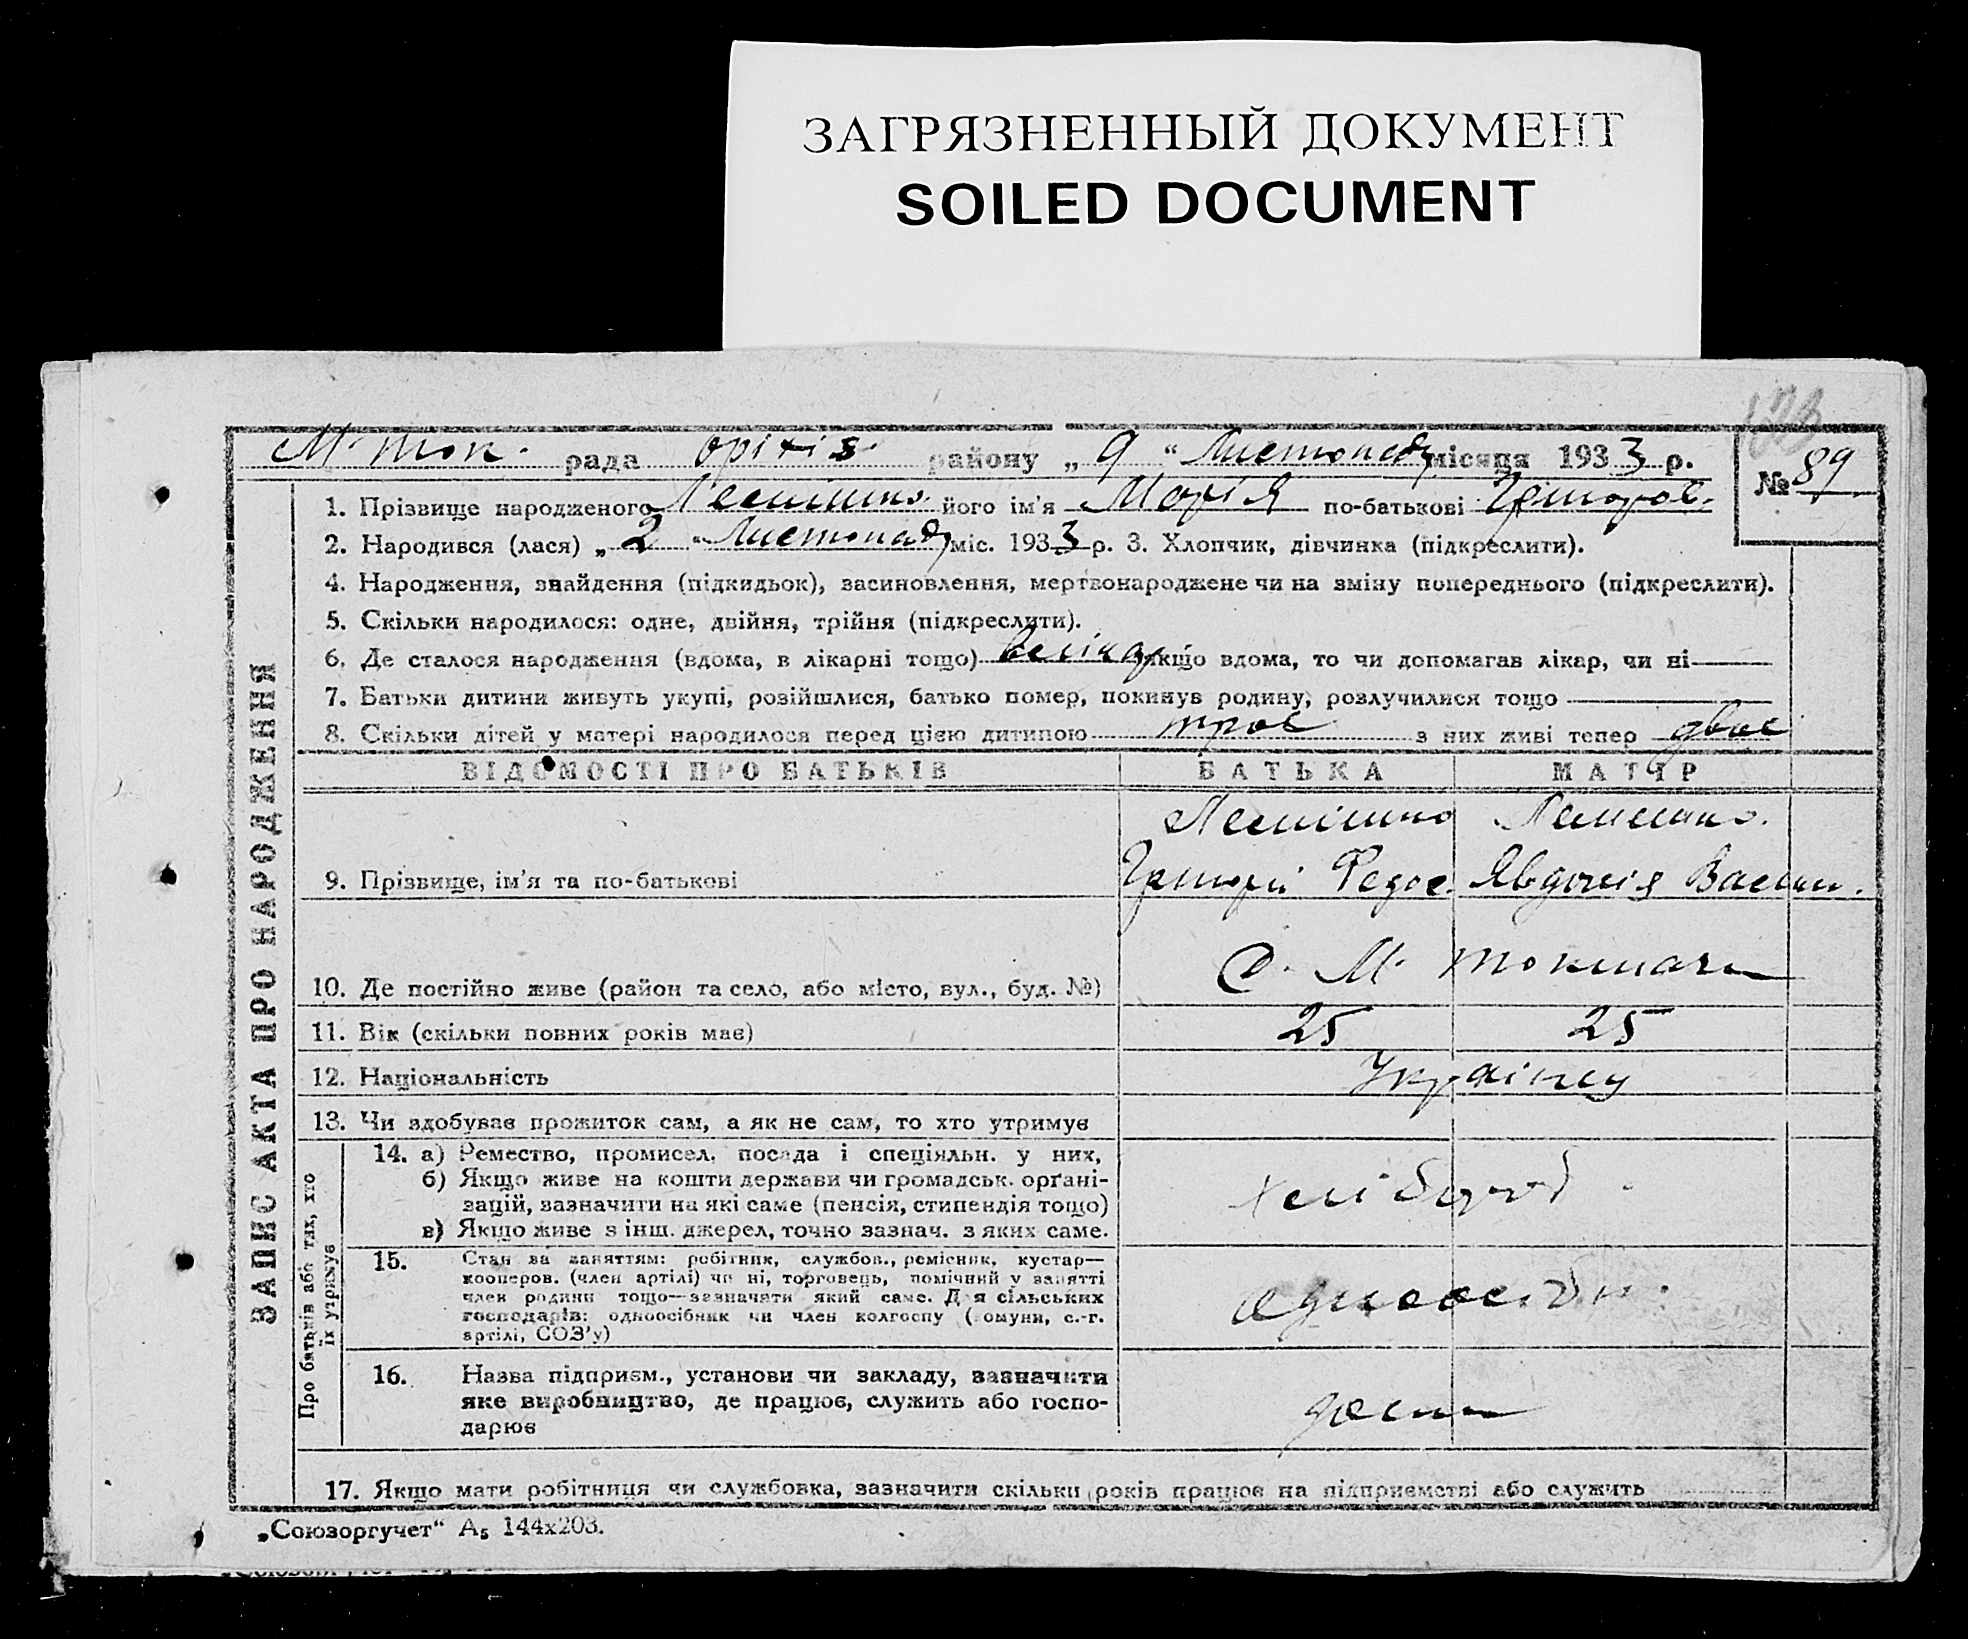 ЗАГРЯЗНЕННЫЙ ДОКУМЕНТ
SOILED DOCUMENT
М. Ток. рада оріхів. району „ 9 “ Листопада місяця 1933 р.
№ 89
1. Прізвище народженого його ім'я Марія по-батькові Григоров.
2. Народився (лася) „ 2 “ Листопада міс. 1933 р. 3. Хлопчик, дівчинка (підкреслити).
4. Народження, знайдення (підкидьок), засиновлення, мертвонароджене чи на зміну попереднього (підкреслити).
5. Скільки народилося: одне, двійня, трійня (підкреслити).
6. Де сталося народження (вдома, в лікарні тощо) якщо вдома, то чи допомагав лікар, чи ні
7. Батьки дитини живуть укупі, розійшлися, батько помер, покинув родину, розлучилися тощо
8. Скільки дітей у матері народилося перед цією дитиною троє з них живі тепер двоє
ЗАПИС АКТА ПРО НАРОДЖЕННЯ
ВІДОМОСТІ ПРО БАТЬКІВ БАТЬКА МАТІР
9. Прізвище, ім'я та по-батькові
Григорій Федос. Явдокія Васил.
10. Де постійно живе (район та село, або місто, вул., буд. №) С. М. Токмачк
11. Вік (скільки повних років має) 25 25
12. Національність Українці
13. Чи здобуває прожиток сам, а як не сам, то хто утримує
Про батьків або тих, хто їх утримує
14. а) Ремество, промисел, посада і спеціяльн. у них,
б) Якщо живе на кошти держави чи громадськ. орґані-
зацій, зазначити на які саме (пенсія, стипендія тощо)
в) Якщо живе з інш. джерел, точно зазнач. з яких саме.
хлібороб
15. Стан за заняттям: робітник, службов., ремісник, кустар—
кооперов. (член артілі) чи ні, торговець, помічний у занятті
член родини тощо—зазначити який саме. Для сільських
господарів: одноосібник чи член колгоспу (комуни, с.-г.
артілі, СОЗ'у)
одноосібн.
16. Назва підприєм., установи чи закладу, зазначити
яке виробництво, де працює, служить або госпо-
дарює
17. Якщо мати робітниця чи службовка, зазначити скільки років працює на підприємстві або служить
„Союзоргучет“ А₅ 144х203.